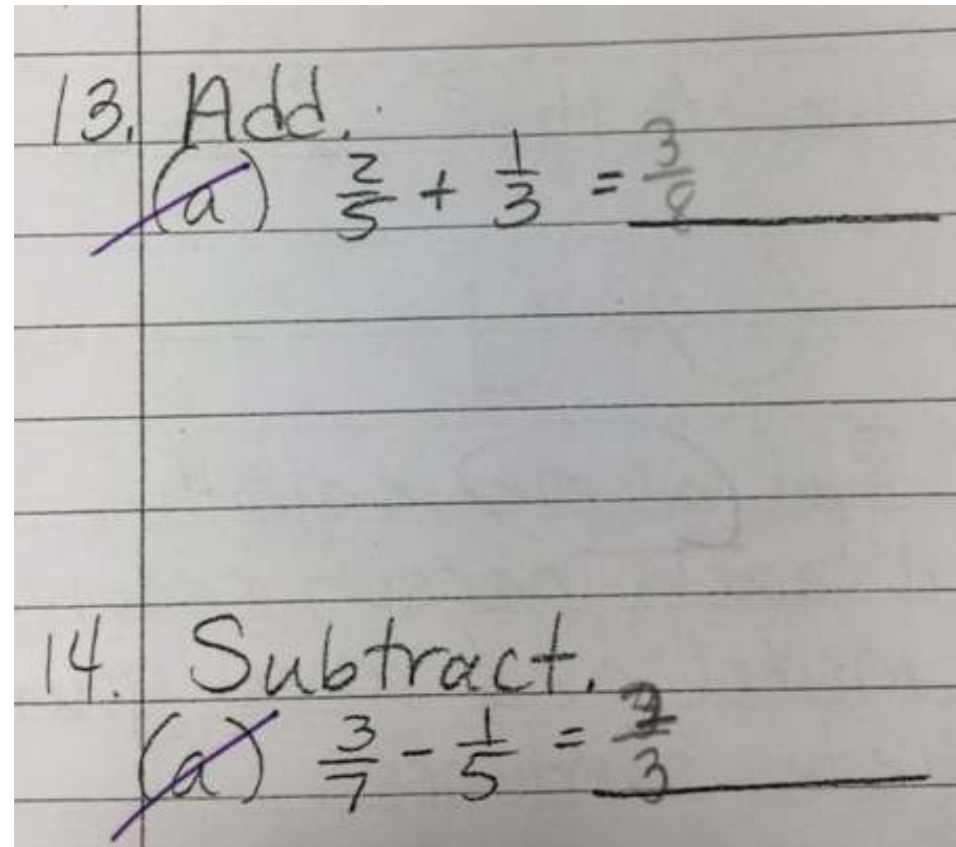 13. Add.
(a) 2/5 + 1/3 = 3/8
14. Subtract.
(a) 3/7 - 1/5 = /3